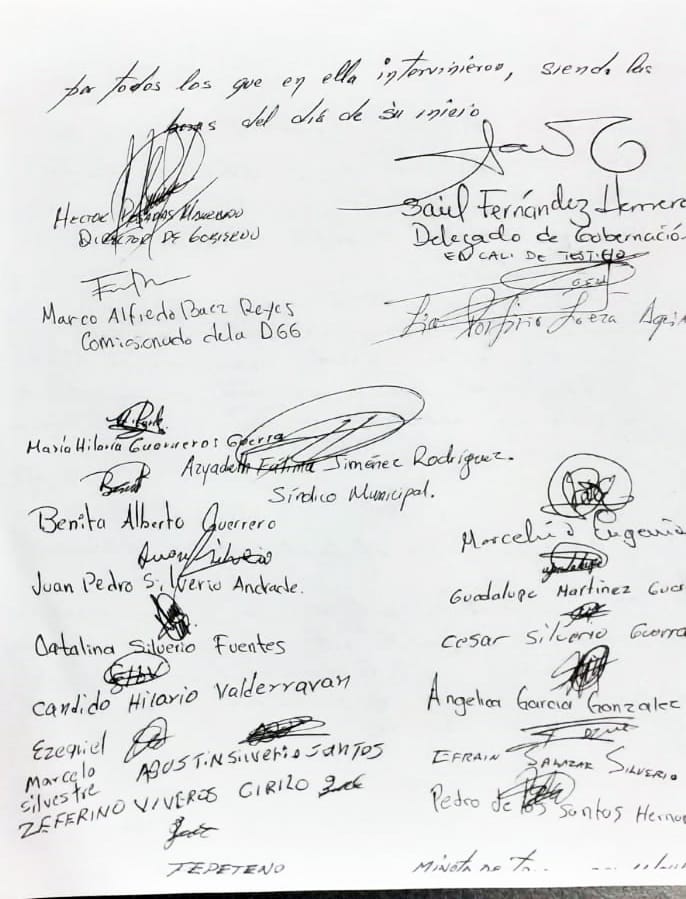 por todos los que en ella intervinieron, siendo las
horas del día de su inicio
HECTOR
DIRECTOR DE GOBIERNO
Saúl Fernández Herrera
Delegado de Gobernació
EN CALI DE TESTIGO
Marco Alfredo Baez Reyes
Comisionado dela DGG
Lic Porfirio Loeza Agui
María Hilaria Guerreros Guerra
Azyadeth Fátima Jiménez Rodríguez.
Síndico Municipal.
Benita Alberto Guerrero
Juan Pedro Silverio Andrade.
Catalina Silverio Fuentes
Candido Hilario Valderravan
Ezequiel
Marcelo
Silvestre
AGUSTIN Silverio SANTOS
ZEFERINO VIVEROS CIRILO
TEPETENO
Eugenia
Guadalupe Martinez Guer
Cesar Silverio Guerra
Angelica Garcia Gonzalez
EFRAIN SALAZAR SILVERIO
Pedro de los Santos Hernan
MINUTA DE